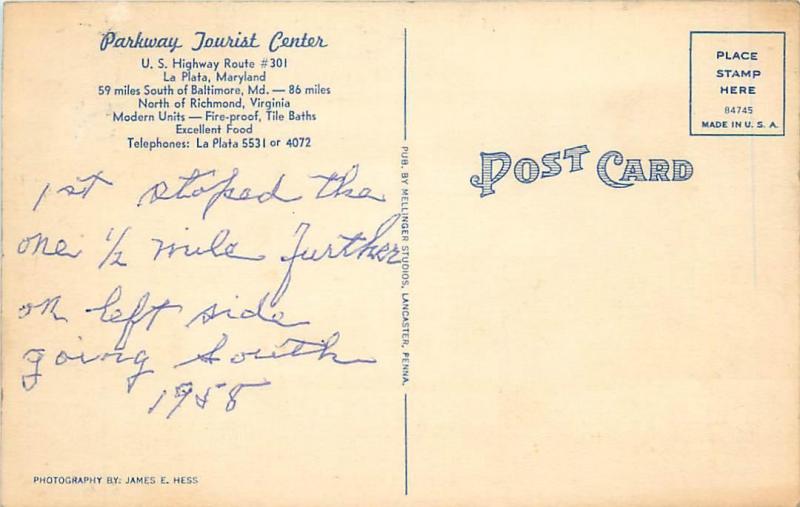 Parkway Tourist Center
U. S. Highway Route #301
La Plata, Maryland
59 miles South of Baltimore, Md. — 86 miles
North of Richmond, Virginia
Modern Units — Fire-proof, Tile Baths
Excellent Food
Telephones: La Plata 5531 or 4072
1st stoped the
one 1/2 mile further
on left side
going South
1958
PHOTOGRAPHY BY: JAMES E. HESS
PUB. BY MELLINGER STUDIOS, LANCASTER, PENNA.
POST CARD
PLACE
STAMP
HERE
84745
MADE IN U. S. A.